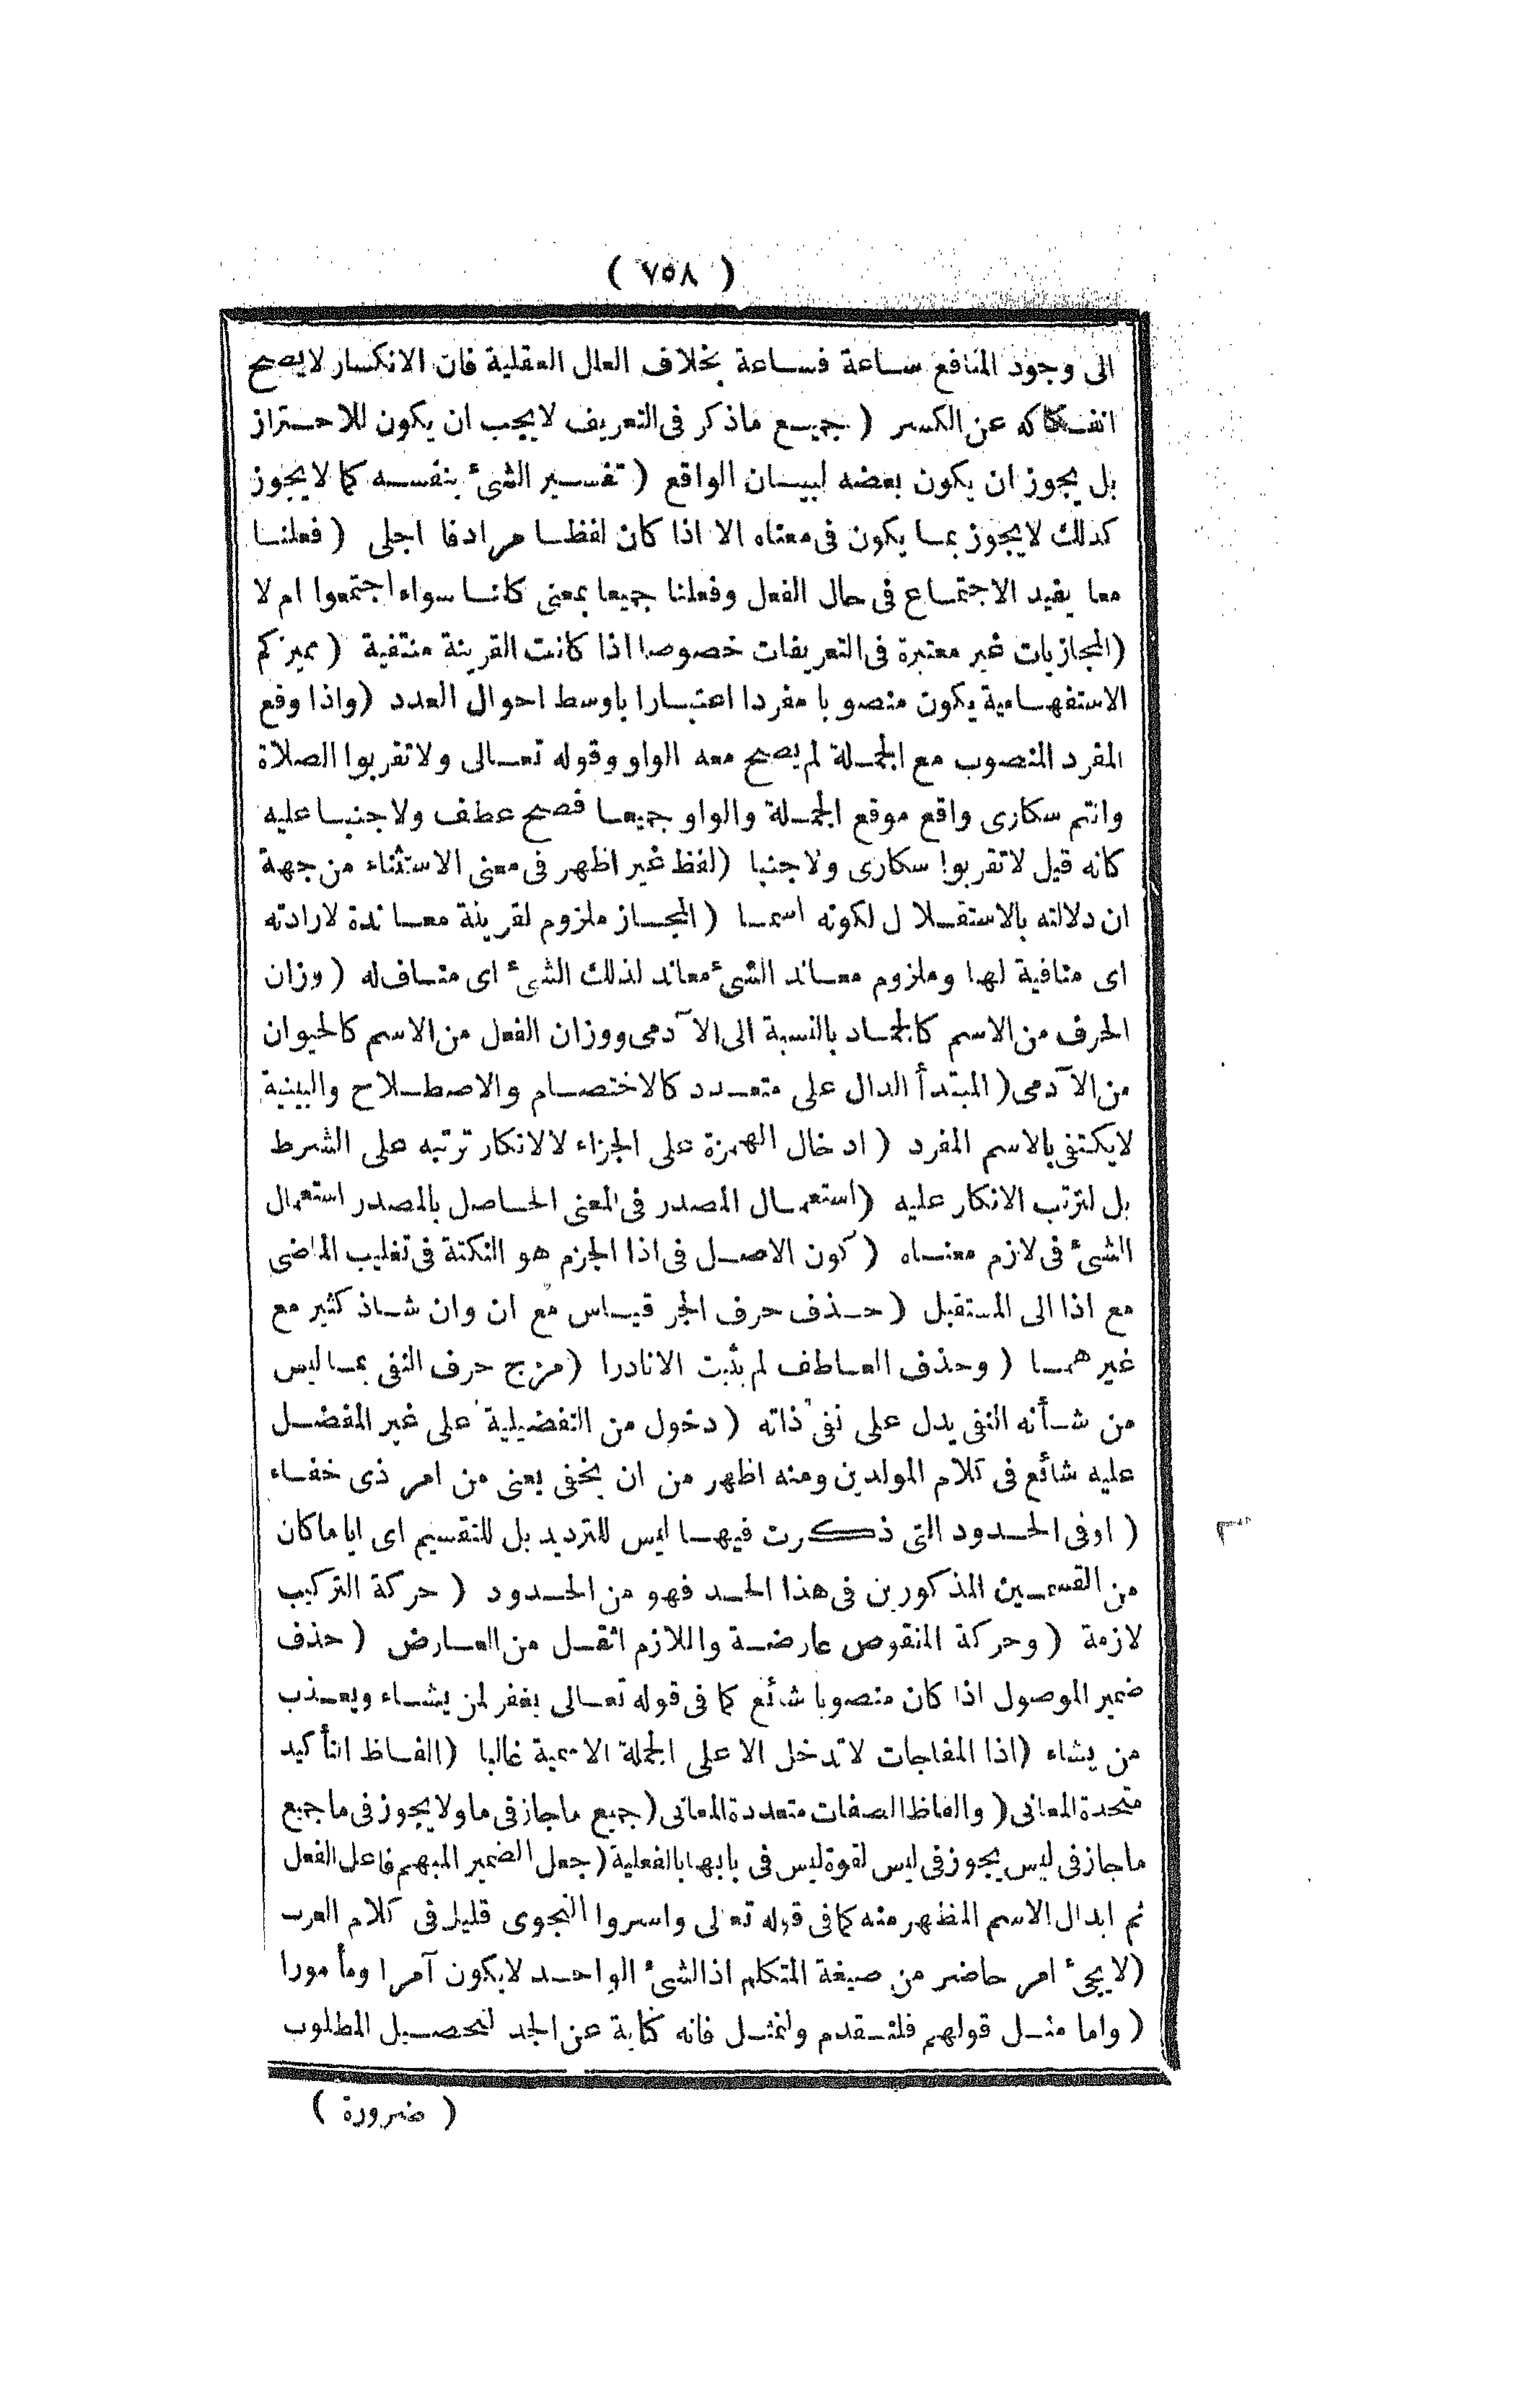 ( ٧٥٨ )
الى وجود المنافع ساعة فساعة بخلاف العلل العقلية فان الانكسار لايصح
انفكاكه عن الكسر ( جميع ماذكر فى التعريف لايجب ان يكون للاحتراز
بل يجوز ان يكون بعضه لبيان الواقع ( تفسير الشئ بنفسه كما لايجوز
كذلك لايجوز بما يكون فى معناه الا اذا كان لفظا مرادفا اجلى ( فعلنا
معا يفيد الاجتماع فى حال الفعل وفعلنا جميعا بمعنى كانا سواء اجتمعوا ام لا
(المجازيات غير معتبرة فى التعريفات خصوصا اذا كانت القرينة منتفية ( مميز كم
الاستفهامية يكون منصوبا مفردا اعتبارا باوسط احوال العدد (واذا وقع
المفرد المنصوب مع الجملة لم يصح معه الواو وقوله تعالى ولاتقربوا الصلاة
وانتم سكارى واقع موقع الجملة والواو جميعا فصح عطف ولاجنبا عليه
كانه قيل لاتقربوا سكارى ولاجنبا (لفظ غير اظهر فى معنى الاستثناء من جهة
ان دلالته بالاستقلال لكونه اسما (المجاز ملزوم لقرينة معاندة لارادته
اى منافية لها وملزوم معاند الشئ معاند لذلك الشئ اى مناف له ( وزان
الحرف من الاسم كالجماد بالنسبة الى الآدمى ووزان الفعل من الاسم كالحيوان
من الآدمى ( المبتدأ الدال على متعدد كالاختصام والاصطلاح والبينية
لايكتفى بالاسم المفرد ( ادخال الهمزة على الجزاء لالانكار ترتبه على الشرط
بل لترتب الانكار عليه (استعمال المصدر فى المعنى الحاصل بالمصدر استعمال
الشئ فى لازم معناه ( كون الاصل فى اذا الجزم هو النكتة فى تغليب الماضى
مع اذا الى المستقبل ( حذف حرف الجر قياس مع ان وان شاذ كثير مع
غيرهما ( وحذف العاطف لم يثبت الانادرا (مزج حرف النفى بما ليس
من شأنه النفى يدل على نفى ذاته ( دخول من التفضيلية على غير المفضل
عليه شائع فى كلام المولدين ومنه اظهر من ان يخفى يعنى من امر ذى خفاء
( اوفى الحدود التى ذكرت فيها ليس للترديد بل للتقسيم اى اياما كان
من القسمين المذكورين فى هذا الحد فهو من الحدود ( حركة التركيب
لازمة ( وحركة المنقوص عارضة واللازم اثقل من العارض ( حذف
ضمير الموصول اذا كان منصوبا شائع كما فى قوله تعالى يغفر لمن يشاء ويعذب
من يشاء (اذا المفاجات لاتدخل الا على الجملة الاسمية غالبا (الفاظ التأكيد
متحدة المعانى ( والفاظ الصفات متعددة المعانى (جميع ماجاز فى ما ولايجوز فى ما جميع
ماجاز فى ليس يجوز فى ليس لقوة ليس فى بابها بالفعلية (جعل الضمير المبهم فاعل الفعل
ثم ابدال الاسم المظهر منه كما فى قوله تعالى واسروا النجوى قليل فى كلام العرب
(لايجئ امر حاضر من صيغة المتكلم اذ الشئ الواحد لايكون آمرا ومأمورا
( واما مثل قولهم فلنقدم ولنمثل فانه كناية عن الجد لتحصيل المطلوب
( ضرورة )